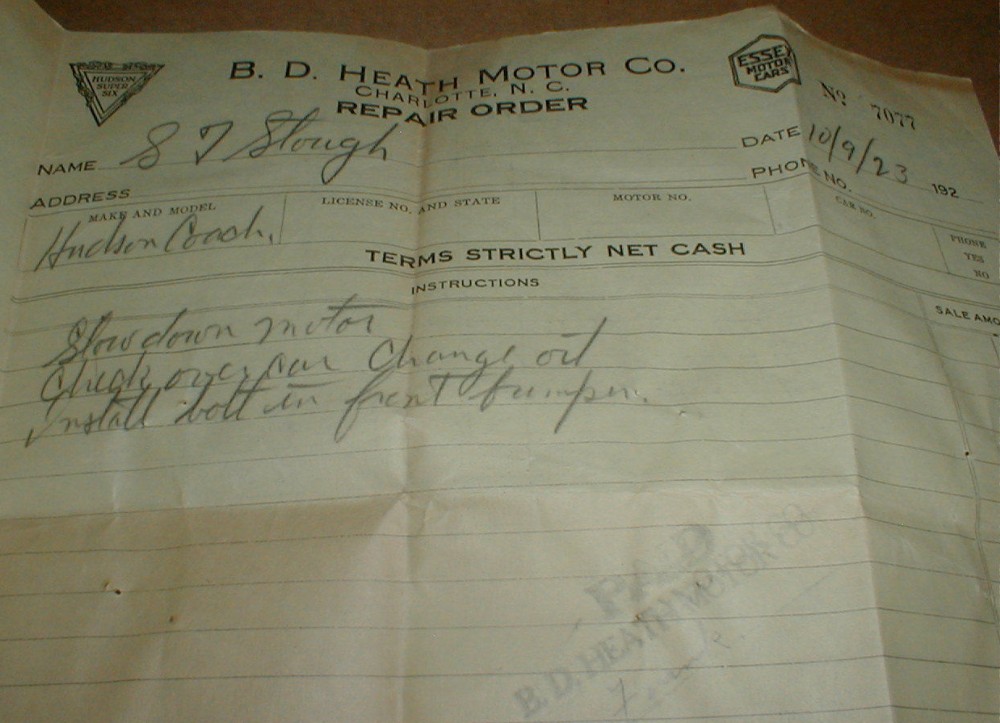 HUDSON
SUPER
SIX
B. D. HEATH MOTOR CO.
CHARLOTTE, N. C.
REPAIR ORDER
ESSEX
MOTOR
CARS
No 7077
NAME S T Slough
DATE 10/9/23 192
ADDRESS
PHONE NO.
MAKE AND MODEL
LICENSE NO. AND STATE
MOTOR NO.
CAR NO.
Hudson Coach.
PHONE
YES
NO
TERMS STRICTLY NET CASH
INSTRUCTIONS
SALE AMO
Slow down motor
Check over car Change oil
Install bolt in front bumper.
PAID
B. D. HEATH MOTOR CO